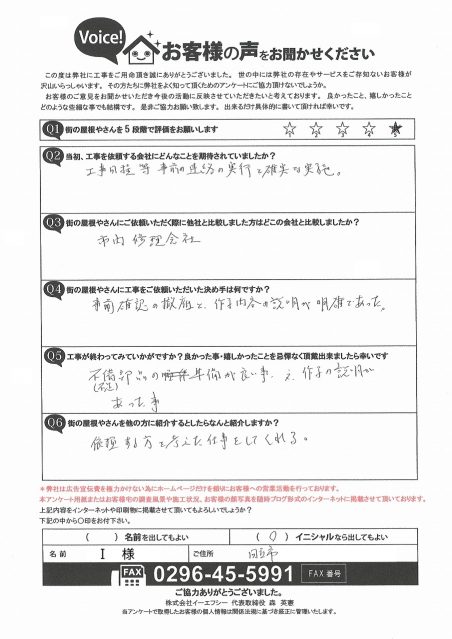 Voice!
お客様の声をお聞かせください
この度は弊社に工事をご用命頂き誠にありがとうございました。世の中には弊社の存在やサービスをご存知ないお客様が
沢山いらっしゃいます。その方たちに弊社をよく知って頂くためのアンケートにご協力頂けないでしょうか。
お客様のご意見をお聞かせいただき今後の活動に反映させていただきたいと考えております。良かったこと、嬉しかったこと
どのような些細な事でも結構です。是非ご協力お願い致します。出来るだけ具体的に書いて頂ければ幸いです。
Q1 街の屋根やさんを5段階で評価をお願いします
Q2 当初、工事を依頼する会社にどんなことを期待されていましたか?
工事日程等事前の連絡の実行と確実な実施。
Q3 街の屋根やさんにご依頼いただく際に他社と比較しました方はどこの会社と比較しましたか?
市内修理会社
Q4 街の屋根やさんに工事をご依頼いただいた決め手は何ですか?
事前確認の徹底と、作手内容の説明が明確であった。
Q5 工事が終わってみていかがですか?良かった事・嬉しかったことを忌憚なく頂戴出来ましたら幸いです
不備部品の準備が良い事
の説明が
あった事
Q6 街の屋根やさんを他の方に紹介するとしたらなんと紹介しますか?
依頼する方と考えた仕事をしてくれる。
*弊社は広告宣伝費を極力かけない為にホームページだけを頼りにお客様への営業活動を行っております。
本アンケート用紙またはお客様宅の調査風景や施工状況、お客様の顔写真を随時ブログ形式のインターネットに掲載させて頂いております。
上記内容をインターネットや印刷物に掲載させて頂いてもよろしいでしょうか?
下記の中から〇印をお付下さい。
( )名前を出してもよい (〇)イニシャルなら出してもよい
名前 I 様 ご住所
FAX 0296-45-5991 FAX 番号
ご協力ありがとうございました。
株式会社イーエフシー 代表取締役 森 英憲
当アンケートで取得したお客様の個人情報は関係法規に基づき厳正に管理いたします。